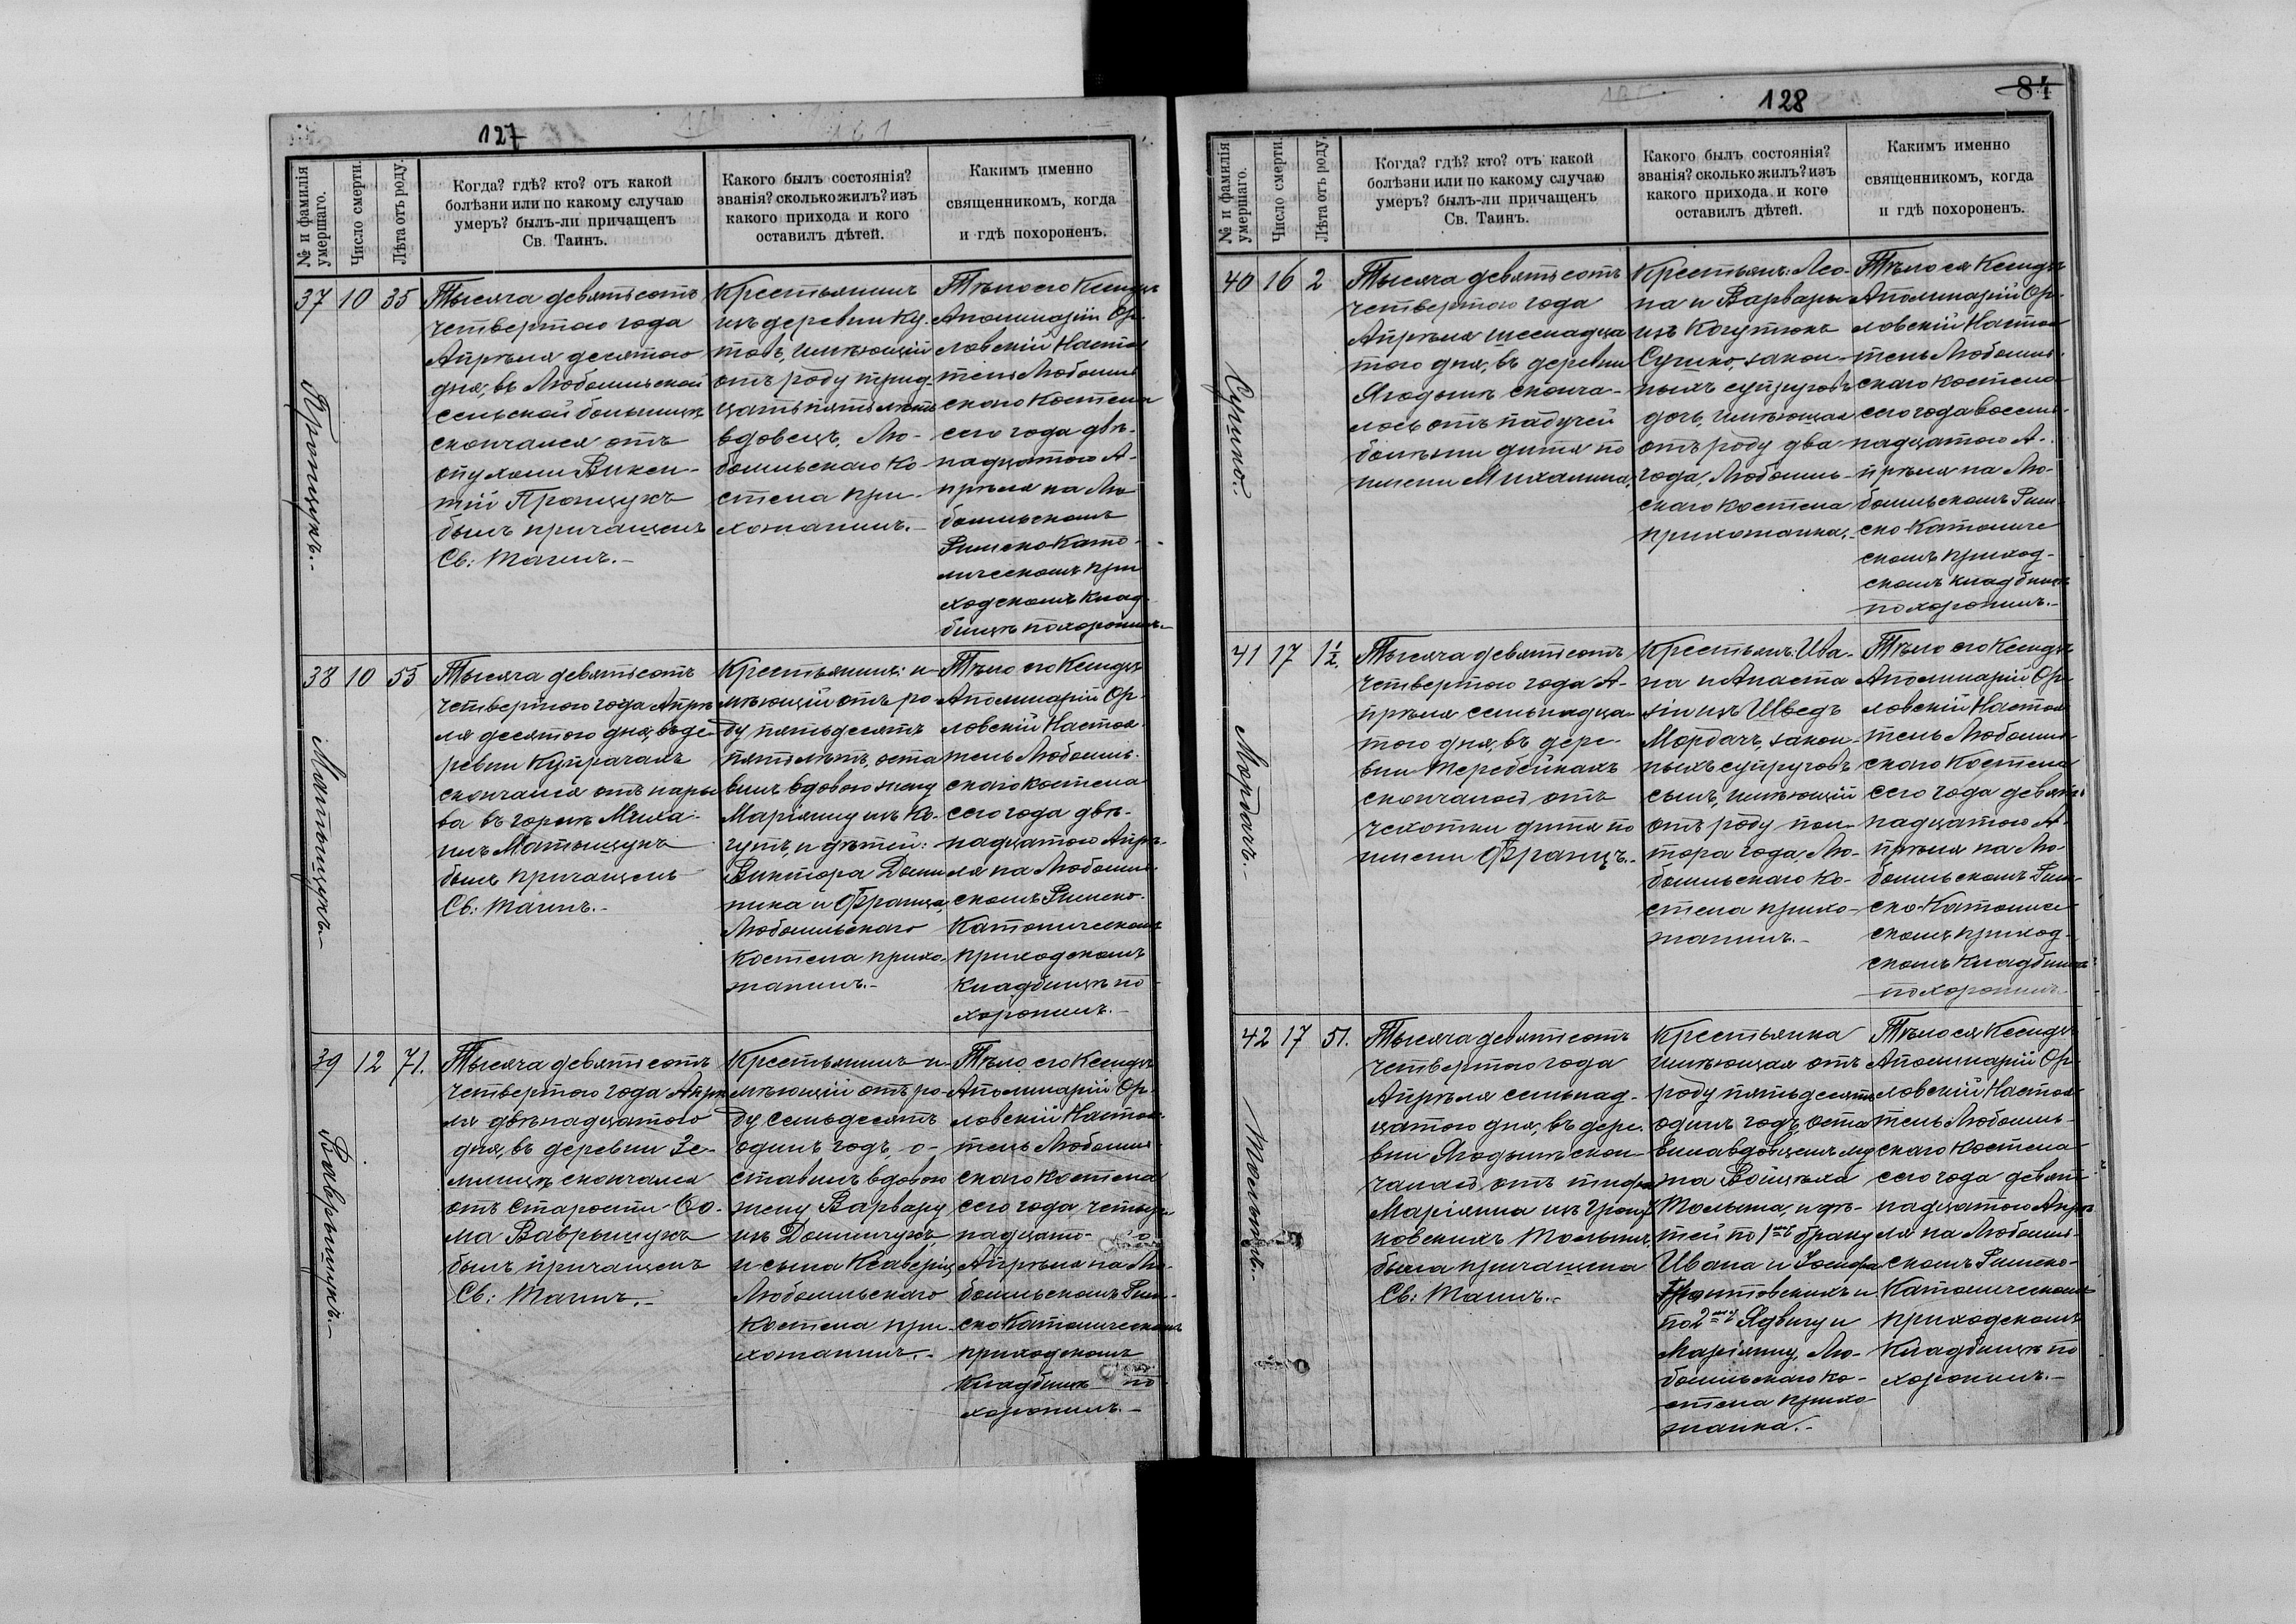 127
№ и фамилія умершаго.
Число смерти.
Лѣта отъ роду.
Когда? гдѣ? кто? отъ какой
болѣзни или по какому случаю
умеръ? былъ-ли причащенъ
Св. Таинъ.
Какого былъ состоянія?
званія? сколько жилъ? изъ
какого прихода и кого
оставилъ дѣтей.
Какимъ именно
священникомъ, когда
и гдѣ похороненъ.
37
Прощукъ.
10
35
Тысяча девятьсотъ
четвертого года
Апрѣля десятого
дня, въ Любомльской
сельской больницѣ
скончался отъ
опухоли Викен-
тій Прощукъ
былъ причащенъ
Св: Таинъ.
Крестьянинъ
изъ деревни Ку-
товъ, имѣющій
отъ роду трид-
цать пять лѣтъ
вдовецъ, Лю-
бомльскаго Ко-
стела при-
хожанинъ.
Тѣло его Ксендзъ
Аполинарій Ор-
ловскій Настоя
тель Любомль
скаго Костела
сего года двѣ-
надцатого А-
прѣля на Лю
бомльскомъ
Римско Като-
лическомъ при
ходскомъ клад-
бищѣ похоронилъ.
38
Матыщукъ
10
55
Тысяча девятьсотъ
четвертого года Апрѣ
ля десятого дня, въ де-
ревни Купрачахъ
скончался отъ нары
ва въ горлѣ Миха-
илъ Матыщукъ
былъ причащенъ
Св: Таинъ.
Крестьянинъ: и-
мѣющій отъ ро-
ду пятьдесятъ
пять лѣтъ, оста
вилъ вдовою жену
Маріянну изъ Ко-
гутъ, и дѣтей:
Виктора Доми
ника и Франца,
Любомльскаго
Костела прихо-
жанинъ.
Тѣло его Ксендзъ
Аполинарій Ор-
ловскій Настоя
тель Любомль-
скаго Костела
сего года двѣ-
надцатого Апрѣ-
ля на Любомль-
скомъ Римско-
Католическомъ
приходскомъ
Кладбищѣ по-
хоронилъ.
39
Ваврыщукъ.
12
71.
Тысяча девятьсотъ
четвертого года Апрѣ
ля двѣнадцатого
дня, въ деревни Зе-
млицѣ скончался
отъ старости Ѳо-
ма Ваврыщукъ
былъ причащенъ
Св: Таинъ.
Крестьянинъ и-
мѣющій отъ ро-
ду семьдесятъ
одинъ годъ, о-
ставилъ вдовою
жену Варвару
изъ
и сына Ксаверія,
Любомльскаго
Костела при-
хожанинъ.
Тѣло его Ксендзъ
Аполинарій Ор-
ловскій Настоя-
тель Любомль
скаго Костела
сего года четыр-
надцато-го
Апрѣля на Лю-
бомльскомъ Рим-
ско Католическомъ
приходскомъ
Кладбищѣ по
хоронилъ.
128
84
№ и фамилія умершаго.
Число смерти.
Лѣта отъ роду.
Когда? гдѣ? кто? отъ какой
болѣзни или по какому случаю
умеръ? былъ-ли причащенъ
Св. Таинъ.
Какого былъ состоянія?
званія? сколько жилъ? изъ
какого прихода и кого
оставилъ дѣтей.
Какимъ именно
священникомъ, когда
и гдѣ похороненъ.
40
Сушко.
16
2
Тысяча девятьсотъ
четвертого года
Апрѣля шеснадца
того дня, въ деревни
Ягодынѣ сконча-
лось отъ падучей
болѣзни дитя по
имени Михалина,
Крестьянъ: Лео-
на и Варвары
изъ Когутюкъ
Сушко, закон-
ныхъ супруговъ
дочь, имѣющая
отъ роду два
года, Любомль-
скаго Костела
прихожанка.
Тѣло ея Ксендзъ
Аполинарій Ор-
ловскій Настоя
тель Любомль-
скаго Костела
сего года восем-
надцатого А-
прѣля на Лю-
бомльскомъ Рим-
ско Католиче
скомъ приход-
скомъ кладбищѣ
похоронилъ.
41
Мордачъ
17
1½.
Тысяча девятьсотъ
четвертого года А-
прѣля семьнадца
того дня, въ дере-
вни Теребейкахъ
скончалось отъ
чехотки дитя по
имени Францъ.
Крестьянъ: Ива-
на и Анаста
зіи изъ Шведъ
Мордачъ, закон-
ныхъ супруговъ
сынъ, имѣющій
отъ роду пол-
тора года, Лю-
бомльскаго Ко-
стела прихо-
жанинъ.
Тѣло его Ксендзъ
Аполинарій Ор-
ловскій Настоя
тель Любомль
скаго Костела
сего года девят-
надцатого А-
прѣля на Лю-
бомльскомъ Рим-
ско-Католиче
скомъ приход-
скомъ Кладбищѣ
похоронилъ
42
17
51.
Тысяча девятьсотъ
четвертого года
Апрѣля семьнад-
цатого дня, въ дере-
вни Ягодынѣ скон-
чалась отъ тифа
Маріянна изъ
была причащена
Св: Таинъ.
Крестьянка
имѣющая отъ
роду пятьдесятъ
одинъ годъ, оста
вила вдовцемъ му
жа Войцѣха
и дѣ-
тей по 1му браку
Ивана и Іосифа
по 2му Ядвигу и
Маріянну, Лю-
бомльскаго Ко-
стела прихо-
жанка.
Тѣло ея Ксендзъ
Аполинарій Ор-
ловскій Настоя
тель Любомль-
скаго Костела
сего года девят
надцатого Апрѣ
ля на Любомль-
скомъ Римско-
Католическомъ
приходскомъ
Кладбищѣ по
хоронилъ.